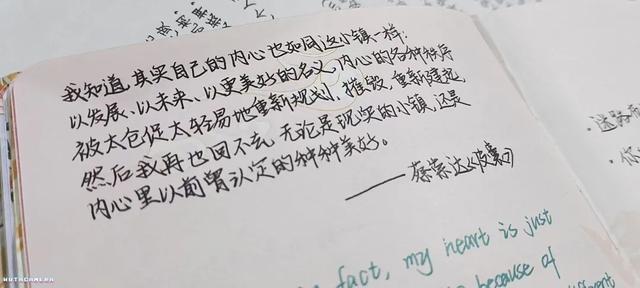 我知道,其实自己的内心也如同这小镇一样:
以发展、以未来、以更美好的名义,内心的各种秩序
被太仓促太轻易地重新规划,摧毁,重新建起,
然后我再也回不去,无论是现实的小镇,还是
内心里以前曾认定的种种美好。
——蔡崇达《皮囊》
fact, my heart is just
because of